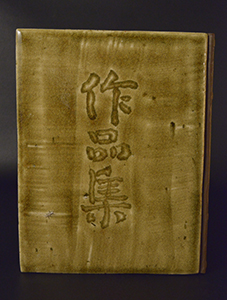 作品集